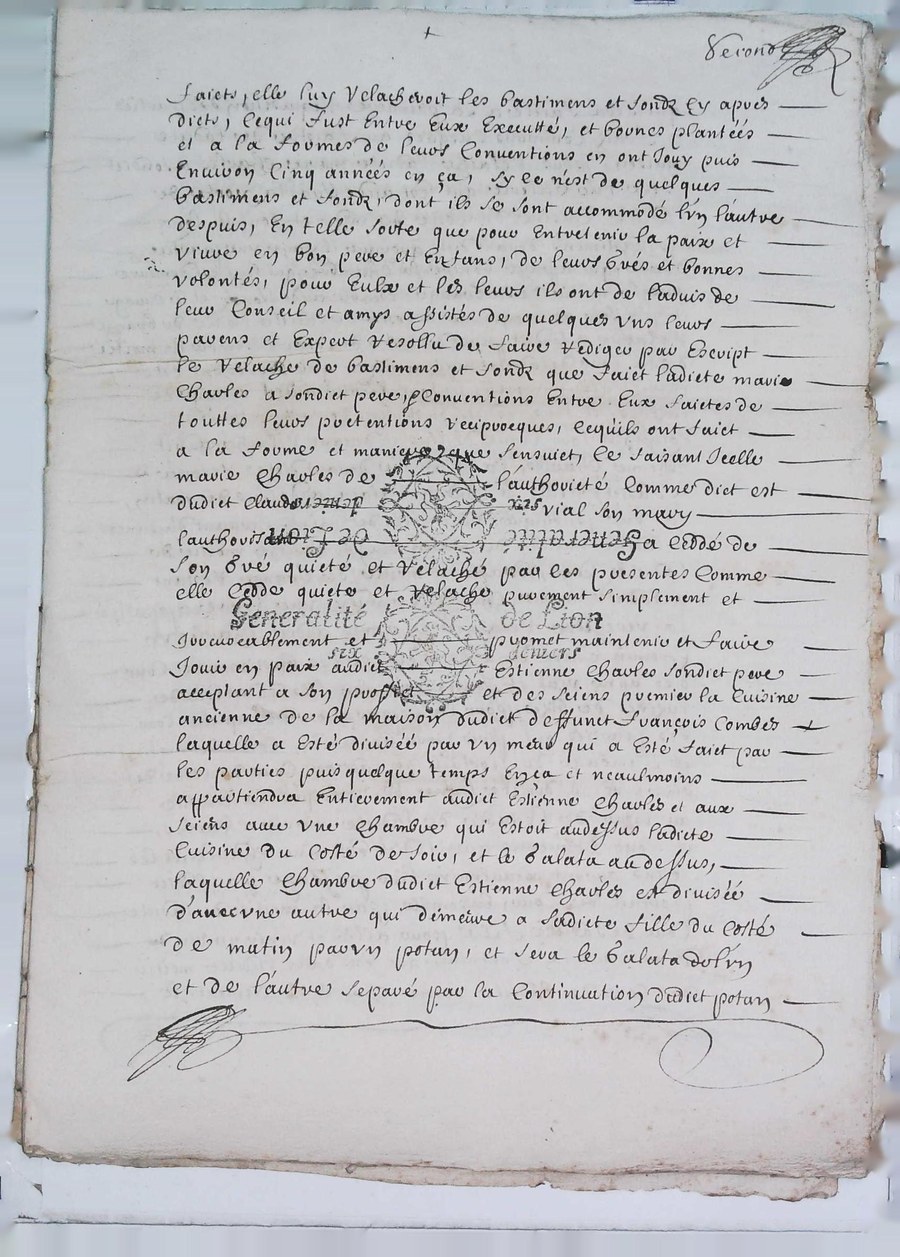 Second
faicts, elle luy relacheroit les bastimens et fondz cy apres
dicts, Cequi fust Entre Eux Executté, et bornes plantées
et a la formes de leurs Conventions en ont Jouy puis
Environ Cinq années en ça, sy ce n'est de quelques
bastimens et fondz, dont ils se sont accommodé l'un l'autre
despuis, En telle sorte que pour Entretenir la paix et
vivre en bon pere et Enfans, de leurs grés et bonnes
volontés, pour Eulx et les leurs ils ont de l'aduis de
leur Conseil et amys assistés de quelques uns leurs
parens et Expert resollu de faire rediger par Escript
le relache de bastimens et fondz que faict ladicte marie
Charles a sondict pere, & Conventions Entre Eux faictes de
touttes leurs pretentions reciprocques, Cequ'ils ont faict
a la forme et maniere que sensuict, Ce faisant Icelle
marie Charles de l'authorieté Comme dict est
dudict Claude vial son mary
l'authorisant a Ceddé de
Son gré quicté et relaché par ces presentes Comme
elle Cedde quicte et relache purement simplement et
Generalité de Lion
Irrevocablement et promet maintenir et faire
six deniers
Jouir en paix audict Estienne Charles sondict pere
acceptant a son proffict et des seiens premier la Cuisine
ancienne de la maison dudict deffunct françois Combes
laquelle a Esté divisée par un meur qui a Esté faict par
les parties puis quelque temps En ça et neaulmoins
appartiendra Entierement audict Estienne Charles et aux
seiens avec une Chambre qui Estoit audessus ladicte
Cuisine du Costé de soir, et le galata audessus,
laquelle Chambre dudict Estienne Charles est divisée
d'avec une autre qui demeure a sadicte fille du Costé
de matin par un potan, et sera le galata de l'un
et de l'autre separé par la Continuation dudict potan